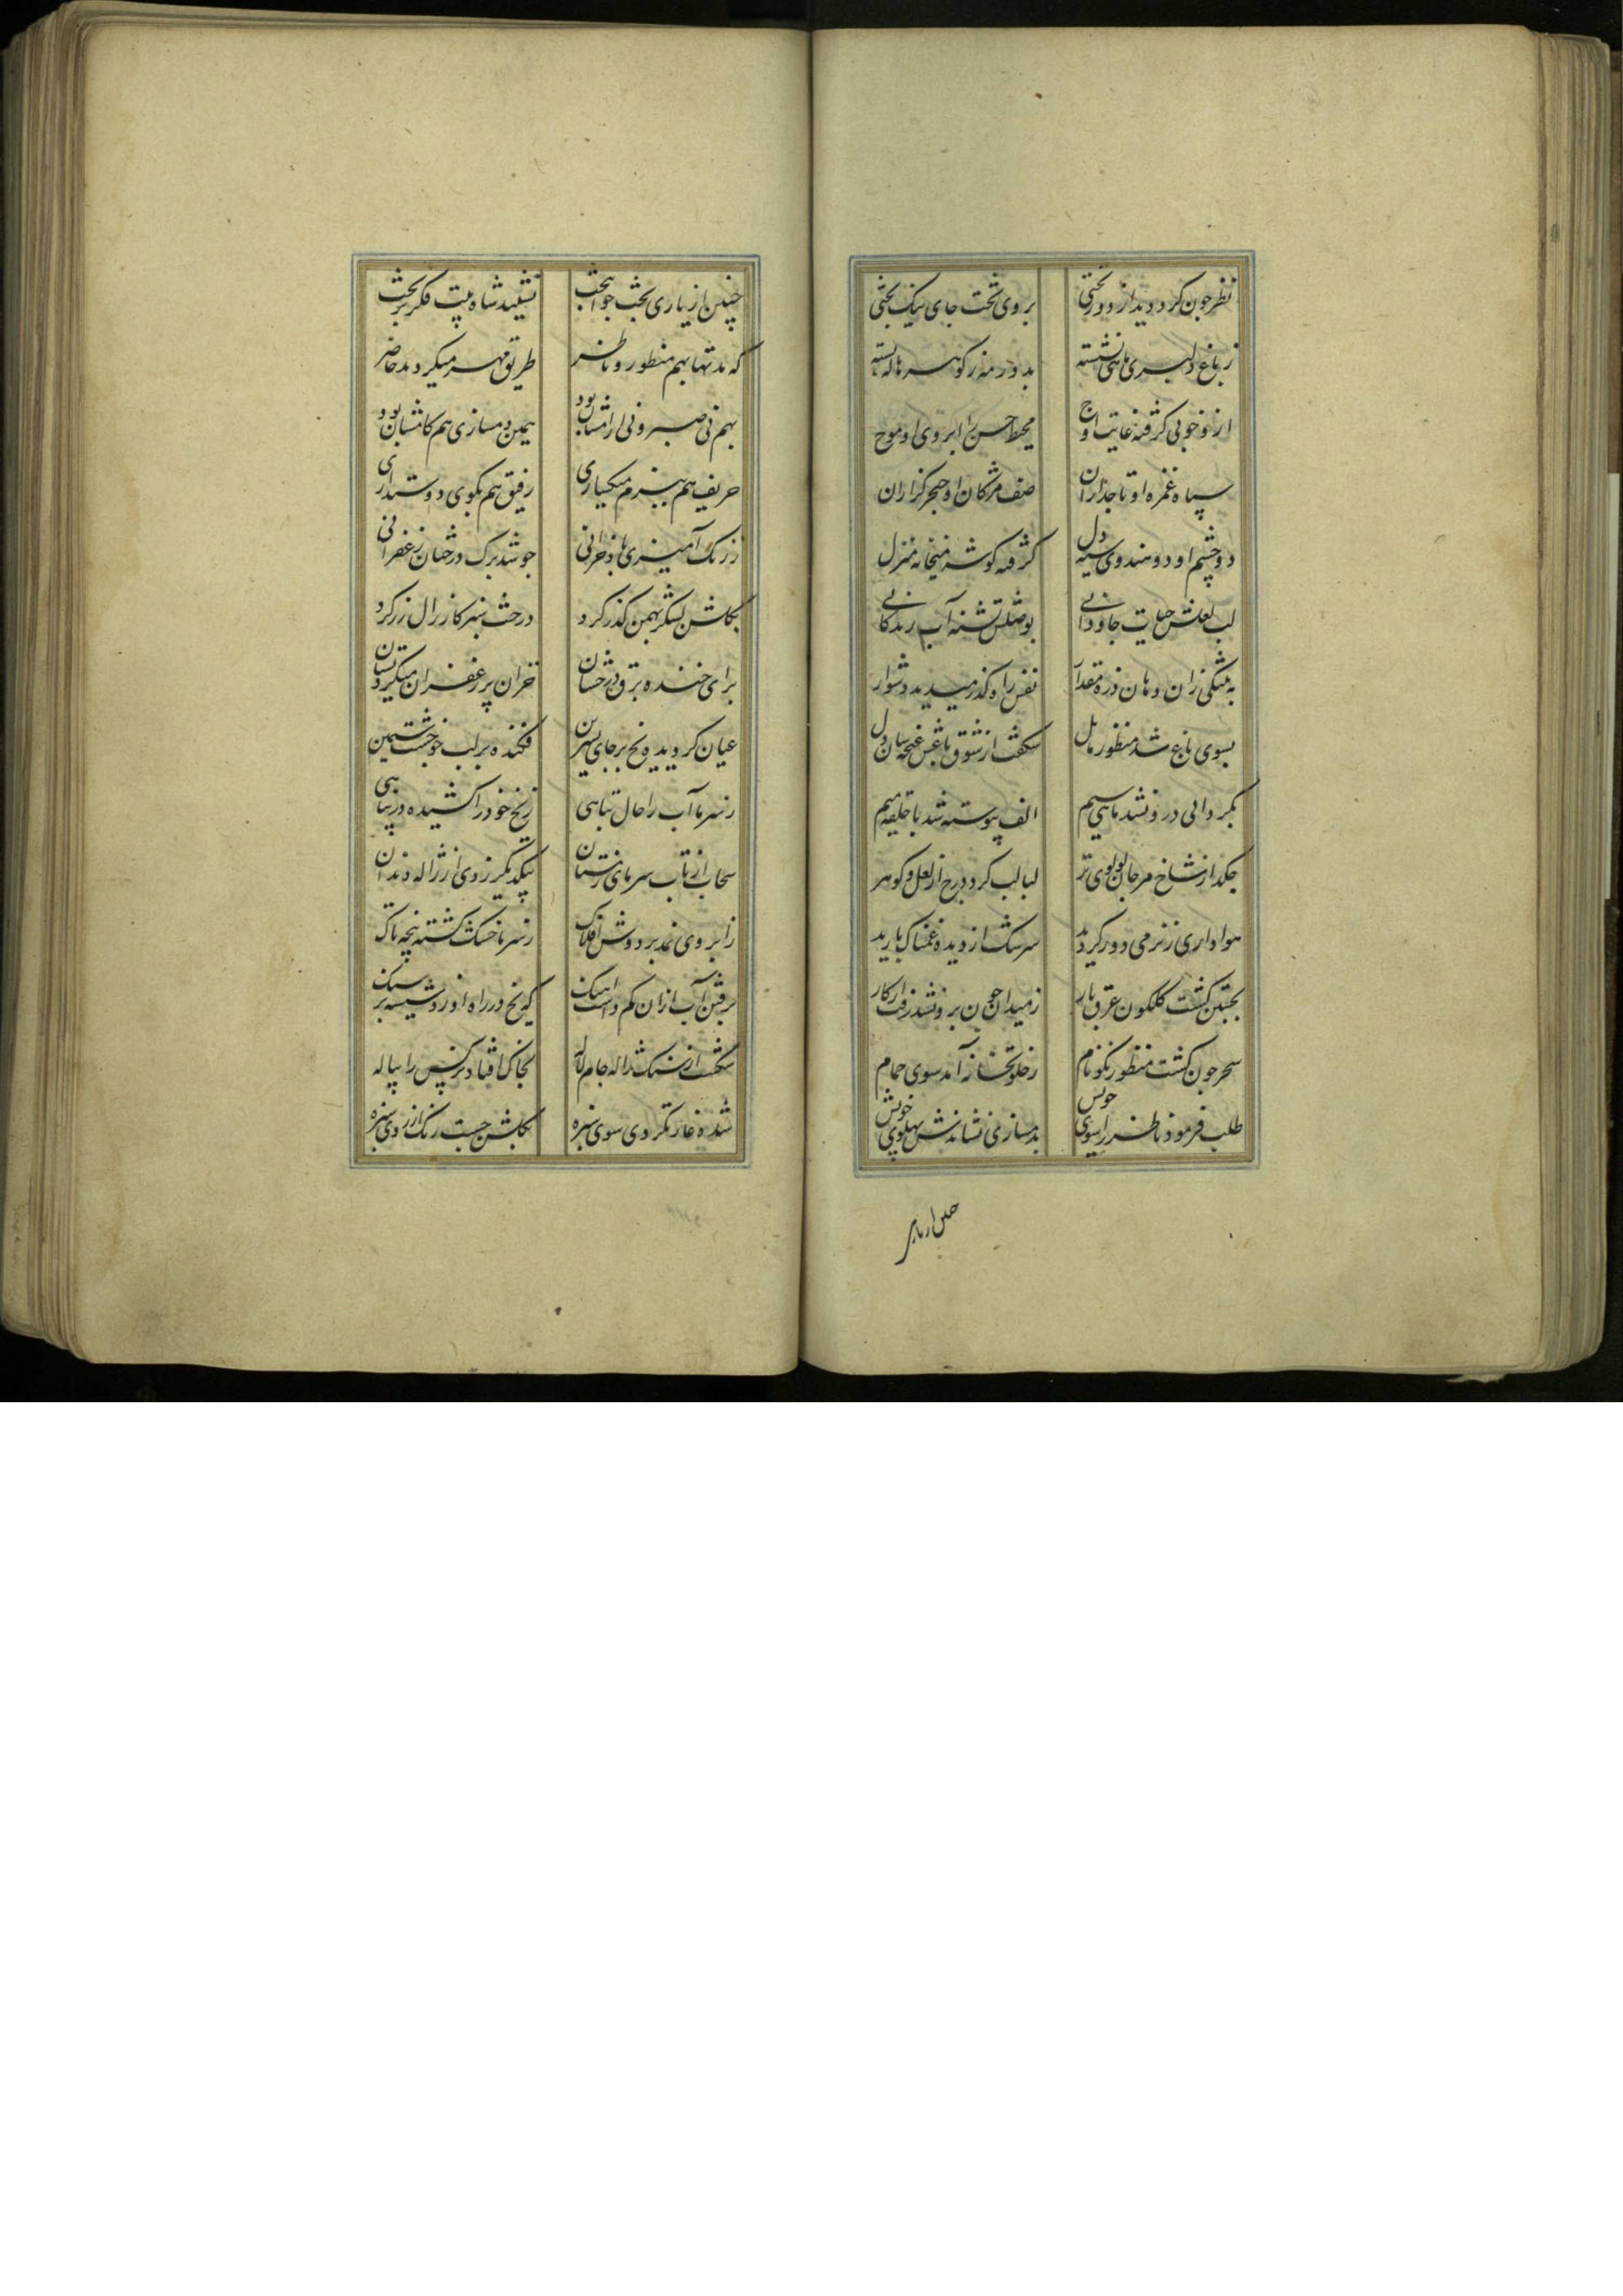 نظر چون کرد دید از دور تختی بروی تخت جای نیک بختی
ز باغ دلبری ماهی نشسته بدور مه ز گوهر هاله بسته
ازو خوبی گرفته غایت اوج محیط حسن را ابروی او موج
سپاه غمزه او تاجداران صف مژکان او خنجر کزاران
دو چشم او دو هندوی سیه دل گرفته گوشه میخانه منزل
لب لعلش حیات جاودانی بوصلش تشنه آب زندگانی
به تنگی زان دهان ذره مقدار نفس را ره گذر میدید دشوار
بسوی باغ شد منظور مایل شکفت از شوق باغش غنچه سان دل
بگردابی درون شد ماهی سیم الف پیوسته شد با حلقه میم
چکد از شاخ مرجان لولوی تر لبالب کرد درج از لعل و کوهر
هواداری ز نرمی دور کردید سرشک از دیده غمناک بارید
بجستن گشت گلگون عرق بار ز میدان چون برون شد رفت از کار
سحر چون کشت منظور نکونام ز خلوتخانه آمد سوی حمام
طلب فرمود ناظر را سوی خویش بدمسازی نشاندش پهلوی خویش
چنین از یاری بخت جوانبخت نشیند شاه بیت فکر بر تخت
که مدتها بهم منظور و ناظر طریق مهر میکردند حاضر
بهم نی صبر و نی آرامشان بود همین دمسازی هم کامشان بود
حریف هم ببزم میکساری رفیق هم بکوی دوستداری
ز رنگ آمیزی باد خزانی چو شد برک درختان زعفرانی
بگلشن لشکر بهمن گذر کرد درخت سبز کار زال زر کرد
برای خنده برق درخشان خزان پر زعفران میکرد بستان
عیان کردیده یخ بر جای نسرین فکنده بر لب جو خشت سیمین
ز سرما آب را حال تباهی ز یخ خود را کشیده در پناهی
سحاب از تاب سرمای زمستان بیکدیگر زدی از ژاله دندان
ز ابر وی نمد بر دوش افلاک ز سرما خشک کشته پنجه تاک
برفتن آب ازان کم داشت آهنک که یخ در راه او زد شیشه بر سنک
شکست از سنک ژاله جام لاله بخاک افتاد نرگس را پیاله
شده غارتگر دی سوی سبزه بگلشن جست رنک از روی سبزه
چنین از یاری